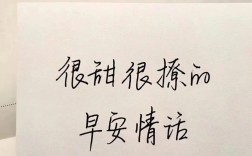 很甜很撩的
早安情话